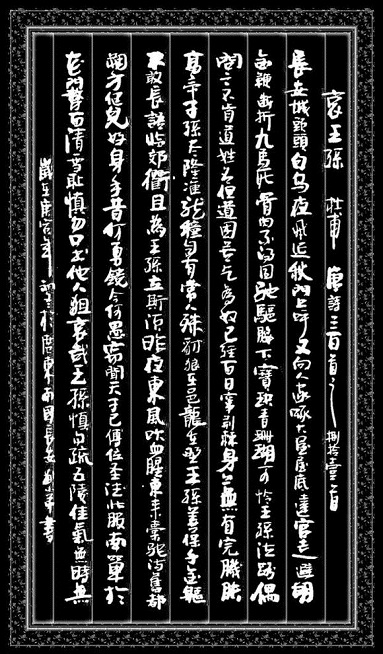 哀王孫 杜甫 唐詩三百首之 捌拾壹首
長安城頭頭白烏夜飛延秋門上呼又向人家啄大屋屋底達官走避胡
金鞭斷折九馬死骨肉不得同馳驅腰下寶玦青珊瑚可憐王孫泣路偶
問之不肯道姓名但道困苦乞為奴已經百日竄荊棘身上無有完肌膚
高帝子孫盡隆準龍種自與常人殊豺狼在邑龍在野王孫善保千金軀
不敢長語臨郊衢且為王孫立斯須昨夜東風吹血腥東來橐駝滿舊都
朔方健兒好身手昔何勇銳今何愚竊聞天子已傳位聖德北服南單于
花門剺面請雪恥慎勿口出他人狙哀哉王孫慎勿疏五陵佳氣無時無
歲在庚寅年 於廣東南國長安 書